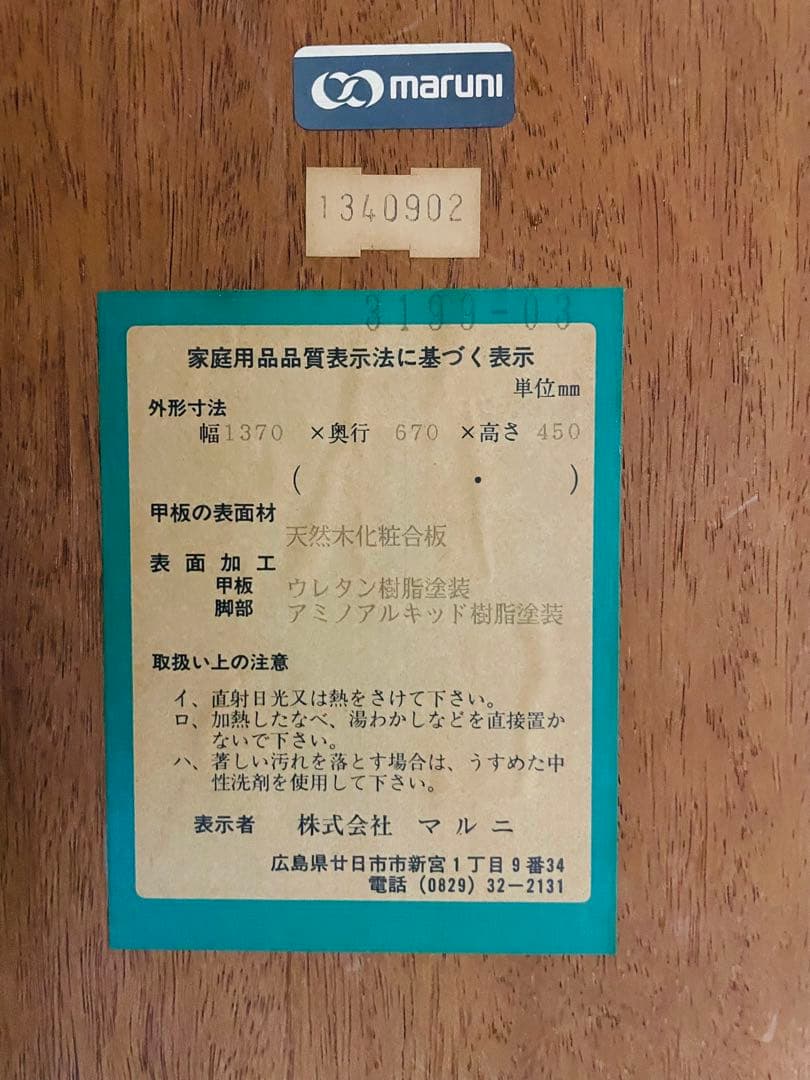 maruni
1340902
3199-03
家庭用品品質表示法に基づく表示
単位mm
外形寸法
幅1370 ×奥行 670 ×高さ 450
( ・ )
甲板の表面材
天然木化粧合板
表面加工
甲板 ウレタン樹脂塗装
脚部 アミノアルキッド樹脂塗装
取扱い上の注意
イ、直射日光又は熱をさけて下さい。
ロ、加熱したなべ、湯わかしなどを直接置か
ないで下さい。
ハ、著しい汚れを落とす場合は、うすめた中
性洗剤を使用して下さい。
表示者 株式会社 マルニ
広島県廿日市市新宮1丁目9番34
電話(0829)32-2131